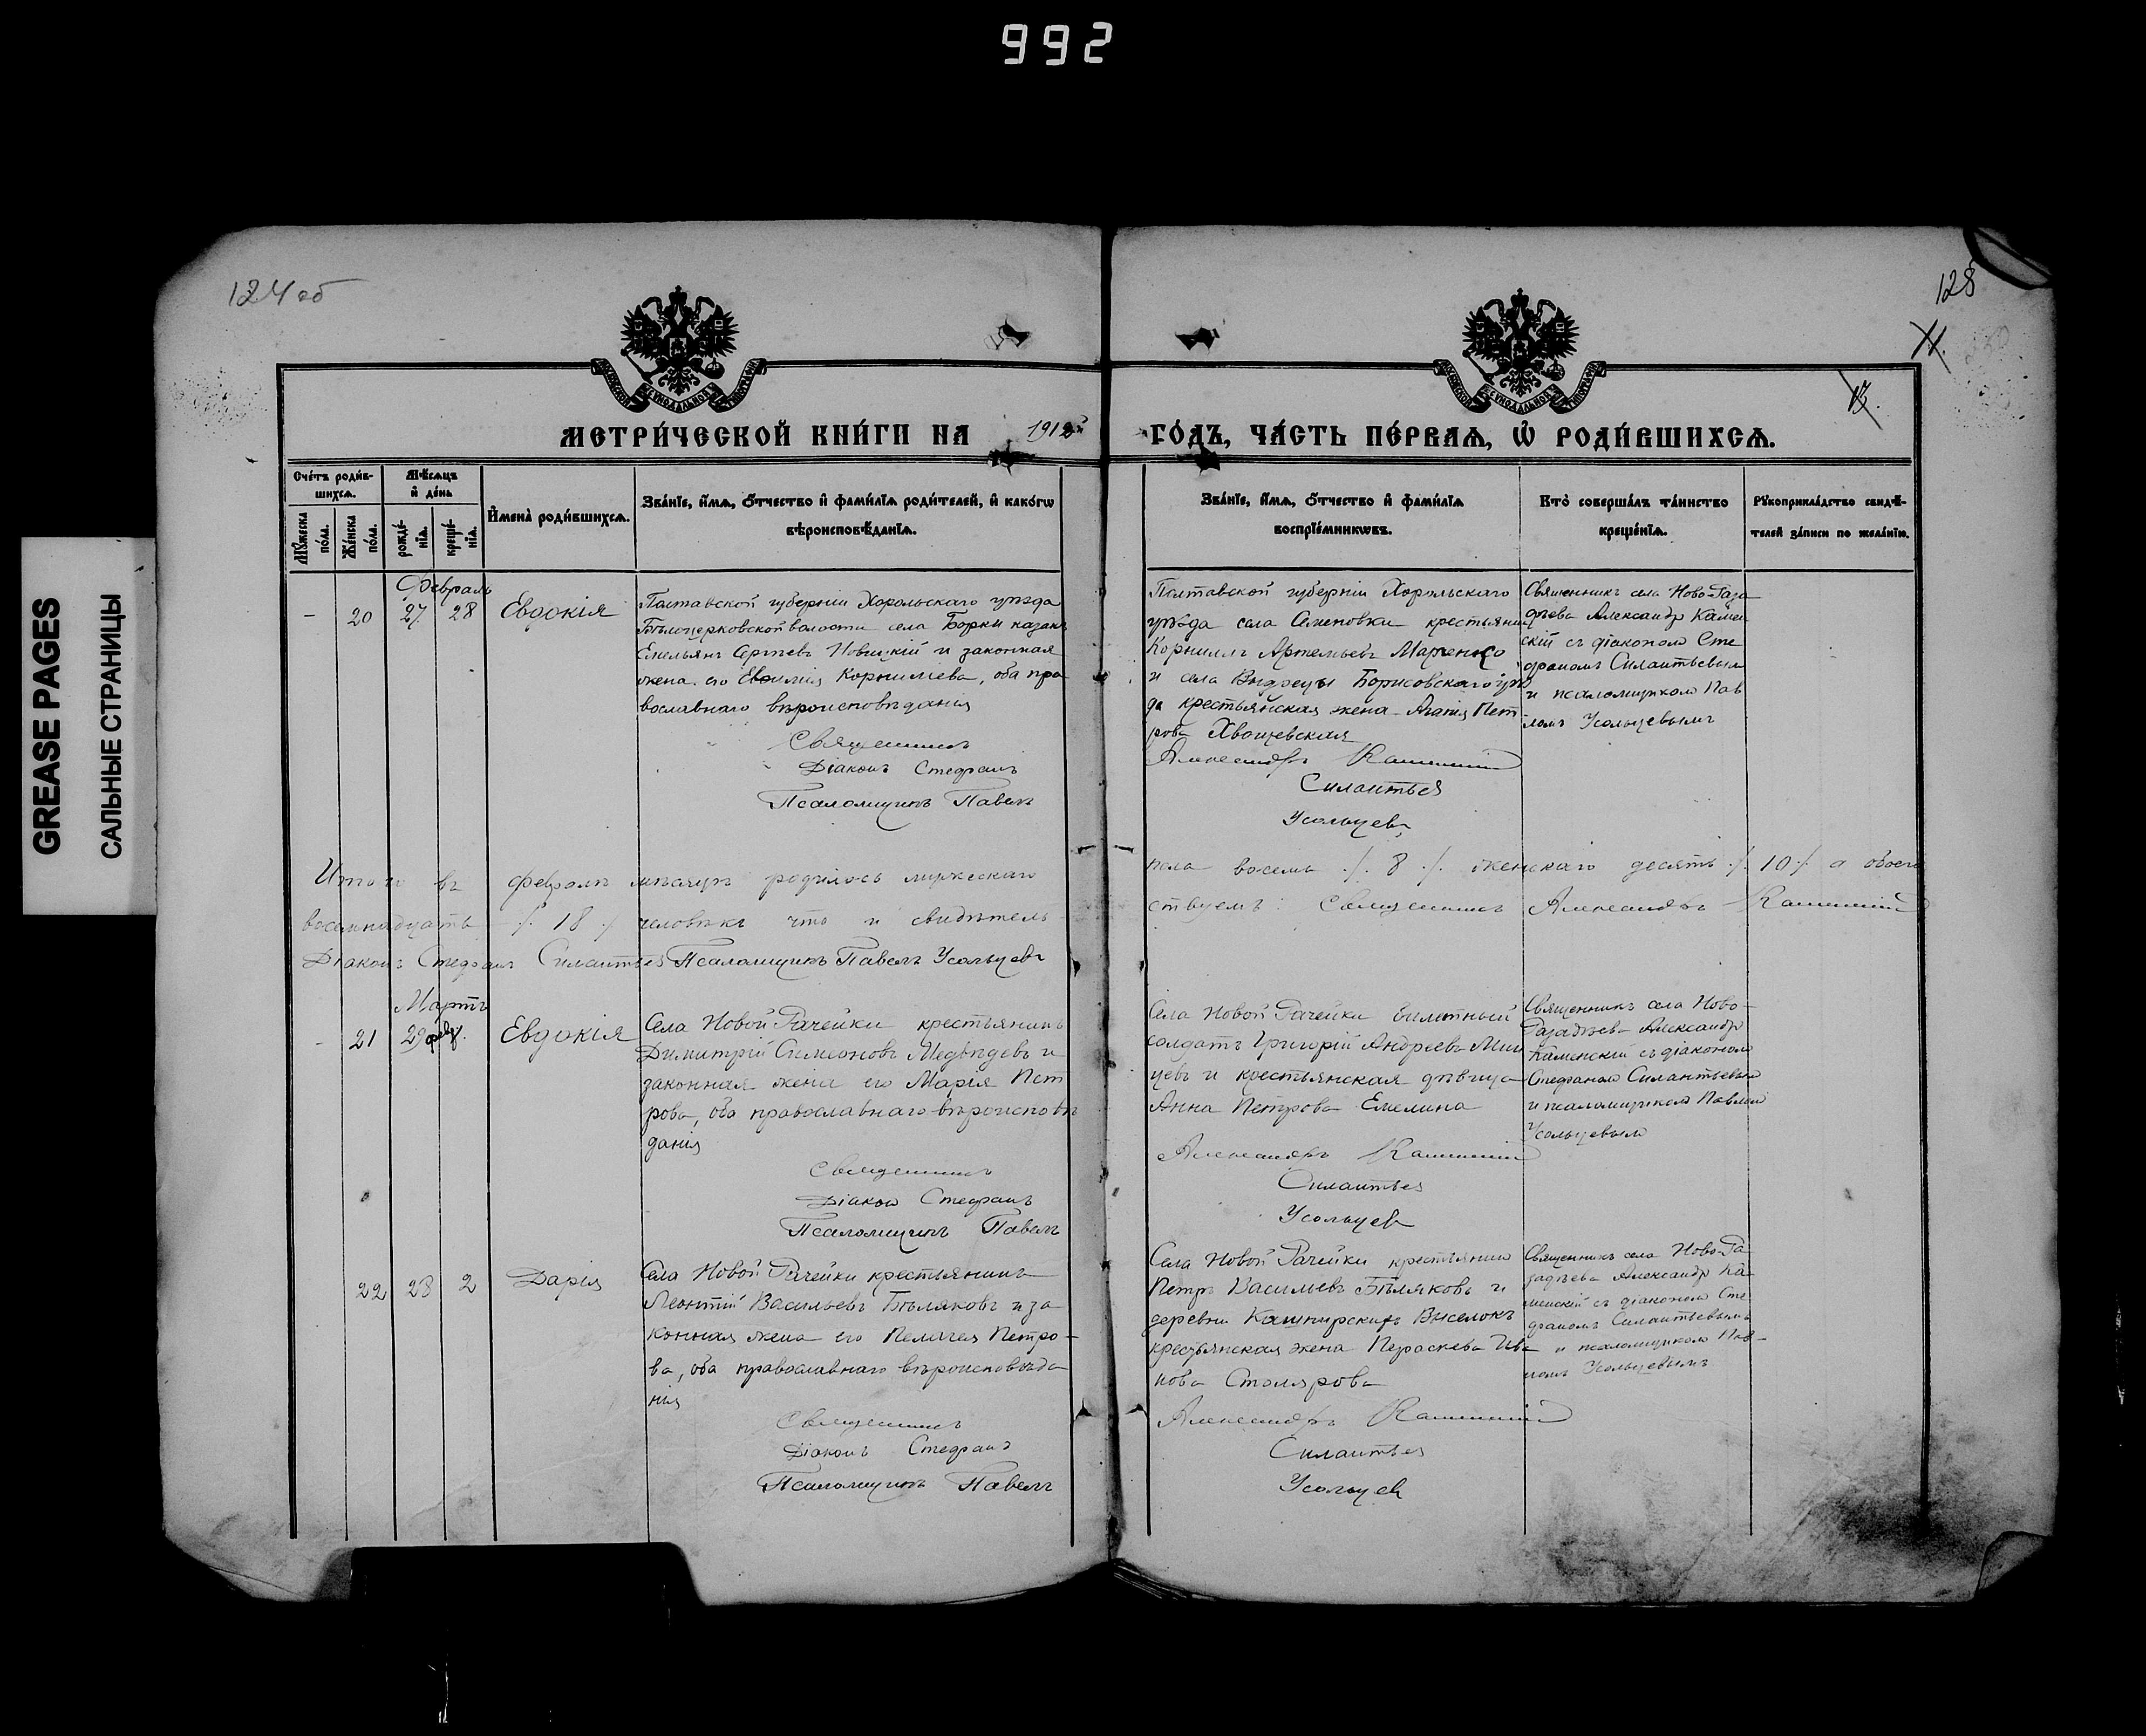 992
GREASE PAGES
САЛЬНЫЕ СТРАНИЦЫ
124 об
128
МЕТРИ́ЧЕСКОЙ КНИ́ГИ НА 1912
ГО́ДЪ, ЧА́СТЬ ПЕ́РВАѦ, Ѡ҆ РОДИ́ВШИХСѦ.
Сче́тъ роди́в-
шихсѧ.
Мѣ́сѧцъ
и҆ де́нь
Мꙋ́жеска по́ла.
Же́нска по́ла.
рожде́-нїѧ.
креще́-нїѧ.
И҆мена̀ роди́вшихсѧ.
Зва́нїе, и҆́мѧ, ѻ҆́тчество и҆ фами́лїѧ роди́телей, и҆ како́гѡ
вѣроисповѣ́данїѧ.
Зва́нїе, и҆́мѧ, ѻ҆́тчество и҆ фами́лїѧ
воспрїе́мникѡвъ.
Кто̀ соверша́лъ та́инство
креще́нїѧ.
Рꙋкоприкла́дство свидѣ́-
телей за́писи по жела́нїю.
Февраль
- 20 27 28 Евдокія
Полтавской губерніи Хорольскаго уѣзда
Бѣлоцерковской волости села Борки казакъ
Емельянъ Сергѣевъ Новицкій и законная
жена его Евфимія Корнилiева, оба пра
вославнаго вѣроисповѣданія
Священникъ
Діаконъ Стефанъ
Псаломщикъ Павелъ
Полтавской губерніи Хорольскаго
уѣзда села Семеновки крестьянинъ
Корнилъ Артемьевъ Марченко
и села Борисовскаго уѣз
да крестьянская жена Агапія Пет
рова Хвощевская
Александръ Каменскій
Силантьев
Усольцевъ
Священникъ села Ново-Раза
дѣева Александр Камен
скій съ діакономъ Сте
фаномъ Силантьевым
и псаломщикомъ Пав
ломъ Усольцевымъ
Итого въ февралѣ мѣсяцѣ родилось мужескаго
пола восемь ./. 8 ./. женскаго десять ./. 10 ./. а обоего
восемнадцать ./. 18 ./. человѣкъ что и свидѣтель
ствуемъ: Священникъ Александръ Каменскій
Діаконъ Стефанъ Силантьев Псаломщикъ Павелъ Усольцевъ
Мартъ
- 21 29 фев. Евдокія
Села Новой Рачейки крестьянинъ
Димитрій Симеоновъ Медвѣдевъ и
законная жена его Марія Пет
рова, оба православнаго вѣроисповѣ
данія
Священникъ
Діакон Стефанъ
Псаломщикъ Павелъ
Села Новой Рачейки билетный
солдатъ Григорій Андреевъ Мин
цевъ и крестьянская дѣвица
Анна Петрова Емелина
Александръ Каменскій
Силантьев
Усольцев
Священникъ села Ново-
Разадѣева Александр
Каменскій съ діакономъ
Стефаномъ Силантьевым
и псаломщикомъ Павлом
Усольцевымъ
22 28 2 Дарія
Села Новой Рачейки крестьянинъ
Леонтій Васильевъ Бѣляковъ и за
конная жена его Пелагея Петро-
ва, оба православнаго вѣроисповѣда
нія
Священникъ
Діаконъ Стефанъ
Псаломщикъ Павелъ
Села Новой Рачейки крестьянин
Петръ Васильевъ Бѣляковъ и
деревни Кашпирскихъ Выселокъ
крестьянская жена Параскева Ива
нова Столярова
Александръ Каменскій
Силантьев
Усольцев
Священникъ села Ново-Ра
задѣева Александр Ка
менскій съ діакономъ Сте
фаномъ Силантьевымъ
и псаломщикомъ Пав-
ломъ Усольцевымъ